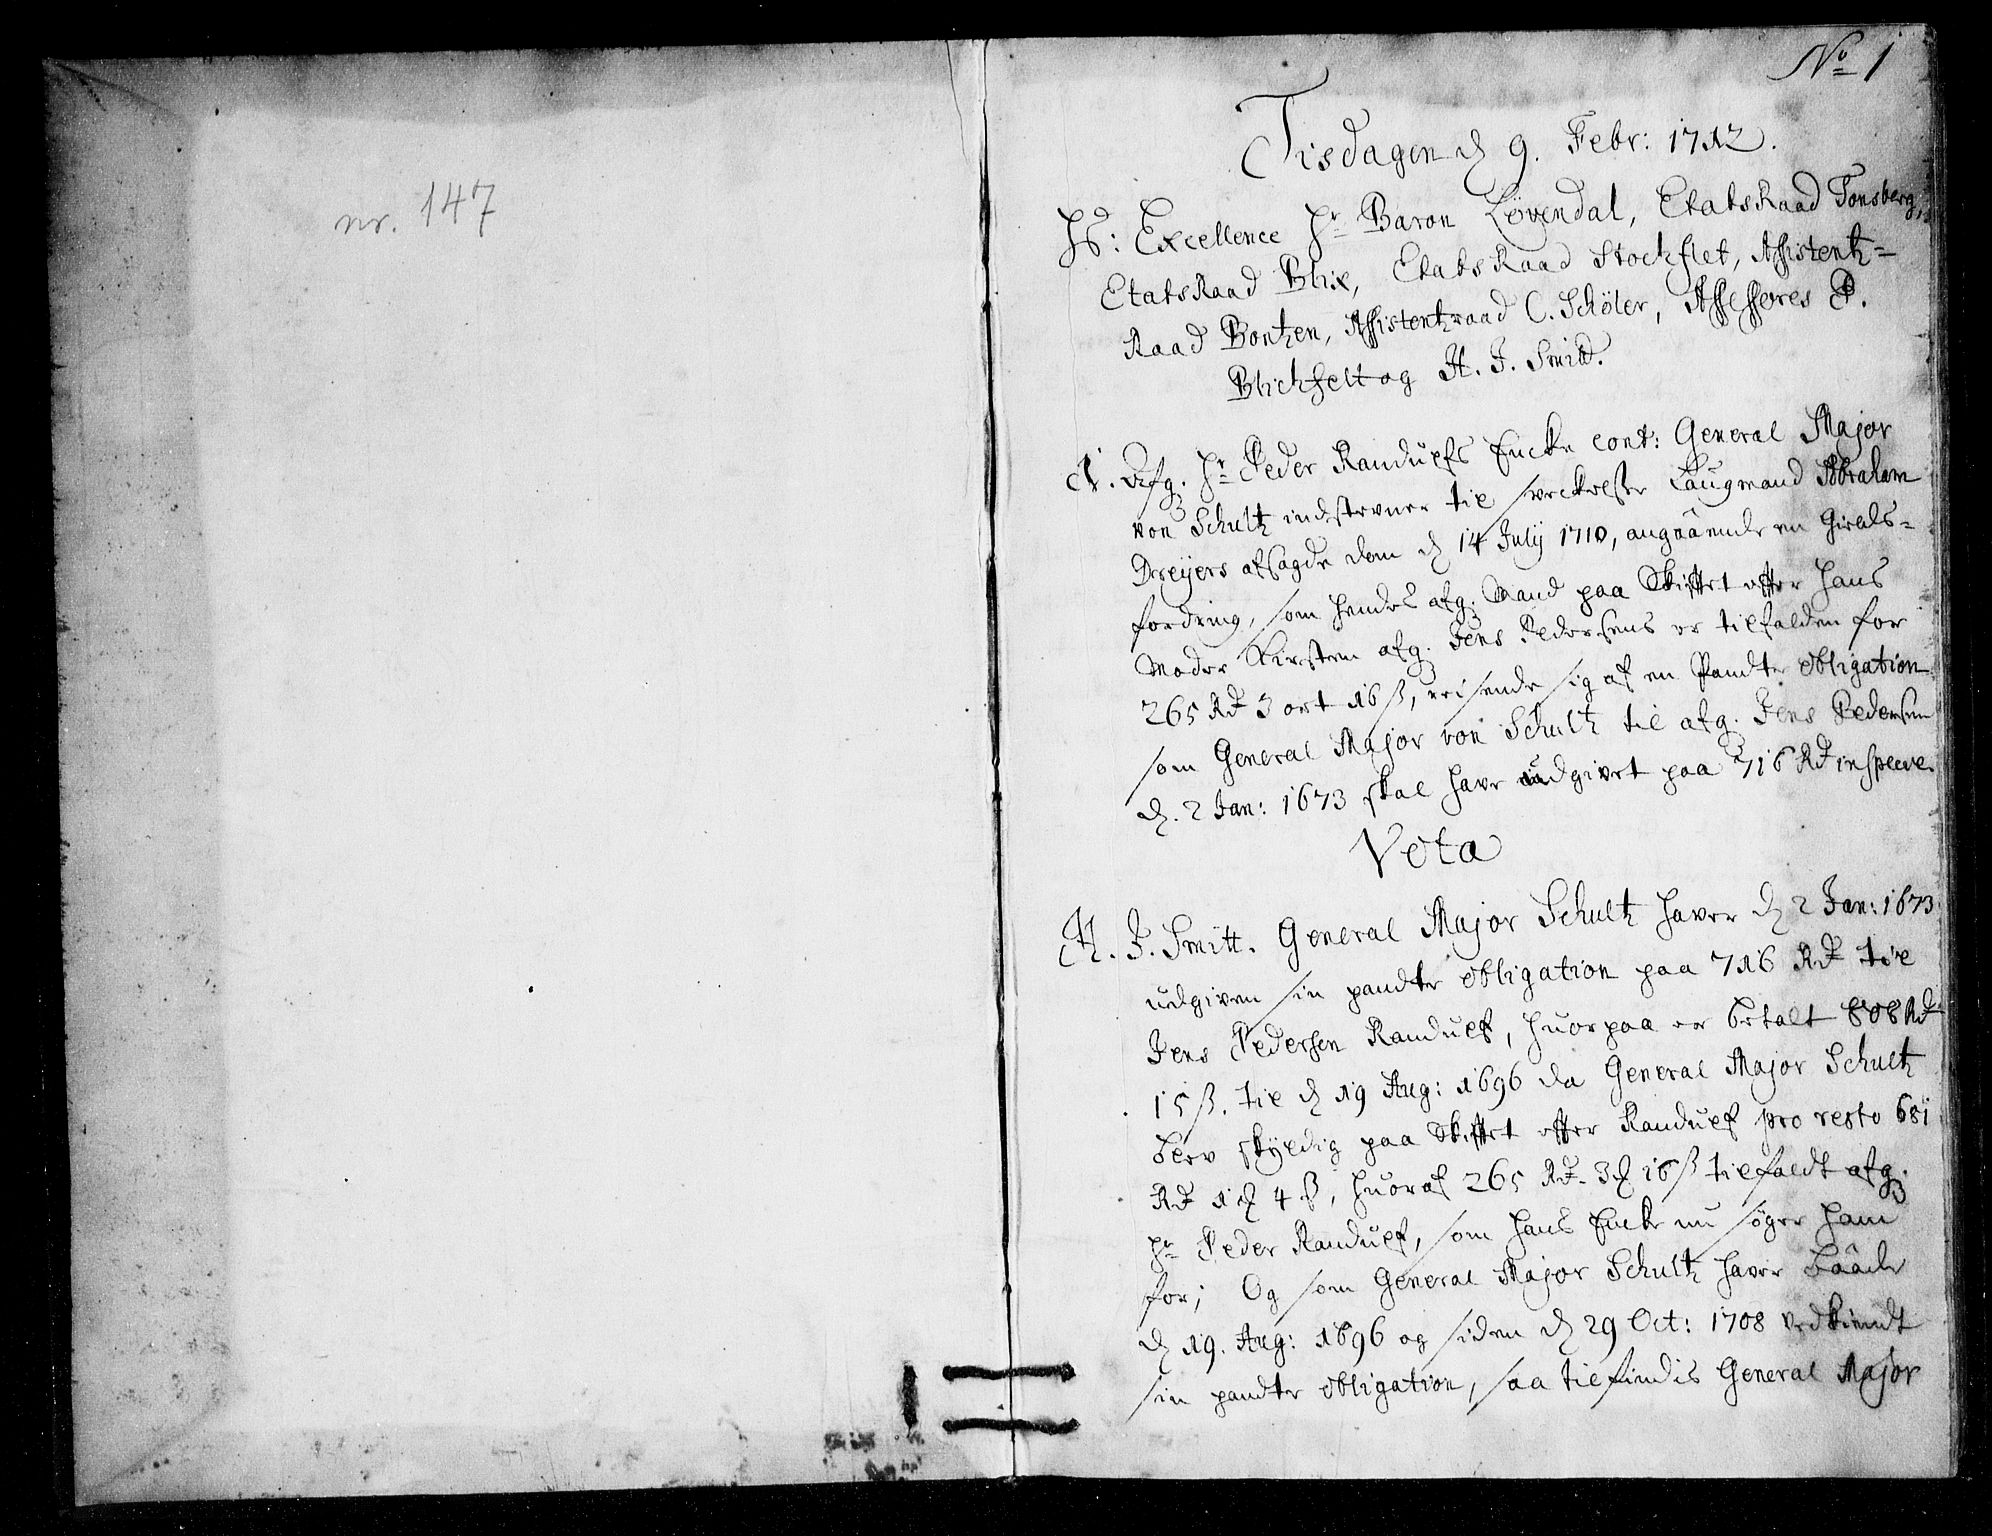 nr. 147
No 1
Tisdagen d 9. Febr: 1712.
Hs: Excellence Hr Baron Løvendal, EtatsRaad Tonsberg,
EtatsRaad Blix, EtatsRaad Stockflet, Assistentz-
Raad Bontzen, Assistentzraad C. Schöler, Assessores P.
Blichfelt og H. J. Smidt.
1. Afg. Hr Peder Randulfs Encke cont: General Major
von Schultz indstevner til sveckelse Laugmand Abraham
Dreyers afsagde dom d 14 July 1710, angaaende en Gields-
fordring, som hendes afg. Mand paa Skiftet effter hans
Moder Kirsten afg. Jens Pedersens er tilfalden for
265 Rd 3 ort 16 ß, reisende sig af en Pandte obligation
som General Major von Schultz til afg. Jens Pedersen
d. 2 Jan: 1673 skal have udgivet paa 716 Rd in specie.
Vota
H. J. Smitt. General Major Schultz haver d 2 Jan: 1673
udgiven sin pandte obligation paa 716 Rd til
Jens Pedersen Randulf, huorpaa er betalt 808 Rd
15 ß. til d 19 Aug: 1696 da General Major Schultz
blev skyldig paa Skiftet effter Randulf pro resto 681
Rd 1 ₰ 4 ß, huoraf 265 Rd. 3 ₰ 16 ß tilfaldt afg.
Hr Peder Randulf, som hans Encke nu søger ham
for; Og som General Major Schultz haver baade
d 19. Aug: 1696 og siden d 29 Oct: 1708 vedkiendt
sin pandte obligation, saa tilfindis General Major